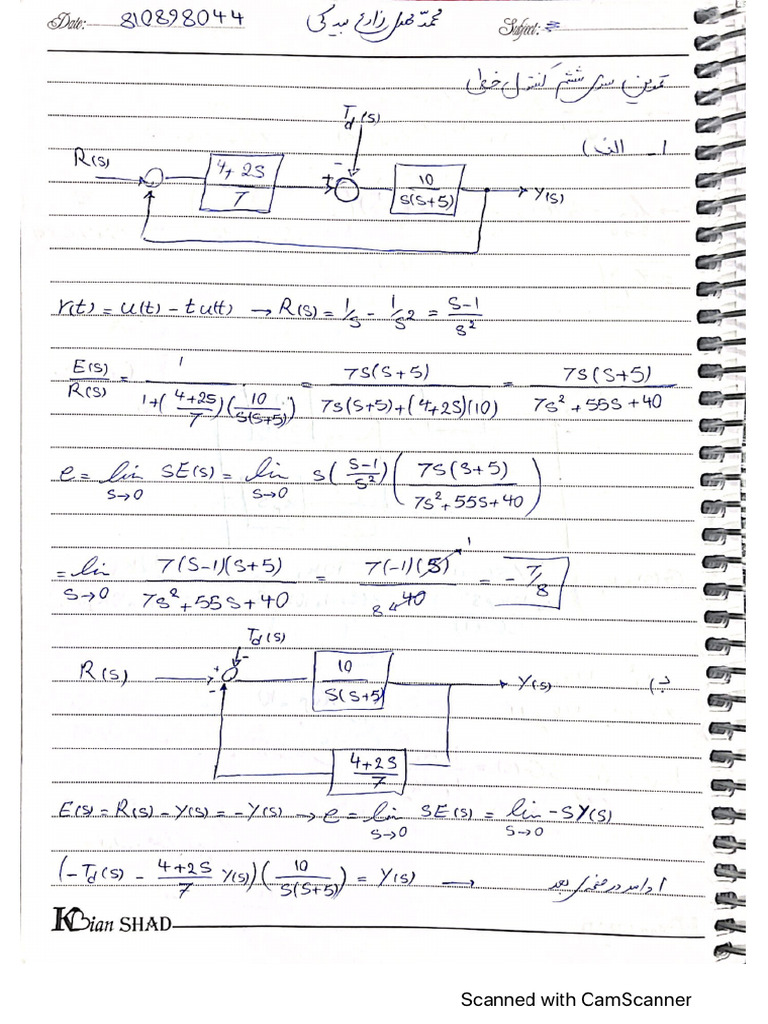 Date: 810898044 محمد فضل زارع بیدکی Subject:
تمرین سری ششم کنترل خطی
۱ـ الف)
T_d(s)
R(s) 4+2S/7 - + 10/S(S+5) Y(s)
r(t) = u(t) - tu(t) → R(s) = 1/s - 1/s2 = S-1/s²
E(s)/R(s) = 1/1+(4+2S/7)(10/S(S+5)) = 7S(S+5)/7S(S+5)+(4+2S)(10) = 7S(S+5)/7S²+55S+40
e = lim S→0 SE(s) = lim S→0 S(S-1/S²)(7S(S+5)/7S²+55S+40)
= lim S→0 7(S-1)(S+5)/7S²+55S+40 = 7(-1)(5)/40 1 8 = -7/8
T_d(s)
R(s) + - - 10/S(S+5) Y(s) ب)
4+2S/7
E(s) = R(s) - Y(s) = -Y(s) → e = lim S→0 SE(s) = lim S→0 -SY(s)
(-T_d(s) - 4+2S/7 Y(s))(10/S(S+5)) = Y(s) → ادامه در صفحه بعد
Kian SHAD
Scanned with CamScanner